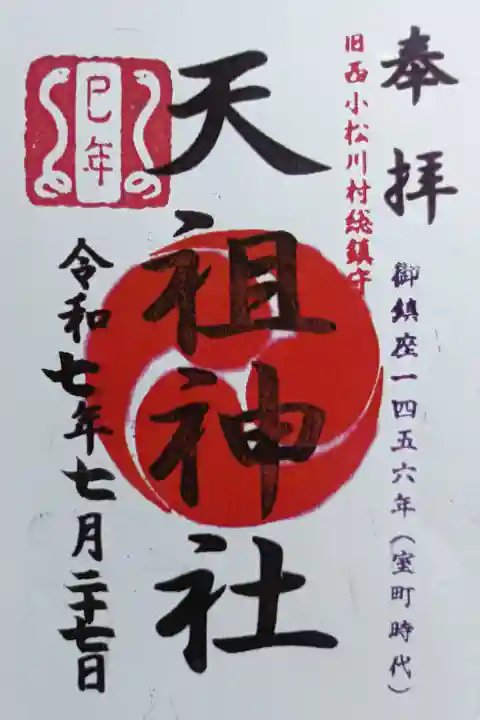 奉拝
旧西小松川村総鎮守
御鎮座一四五六年（室町時代）
天祖神社
巳年
令和七年七月二十七日